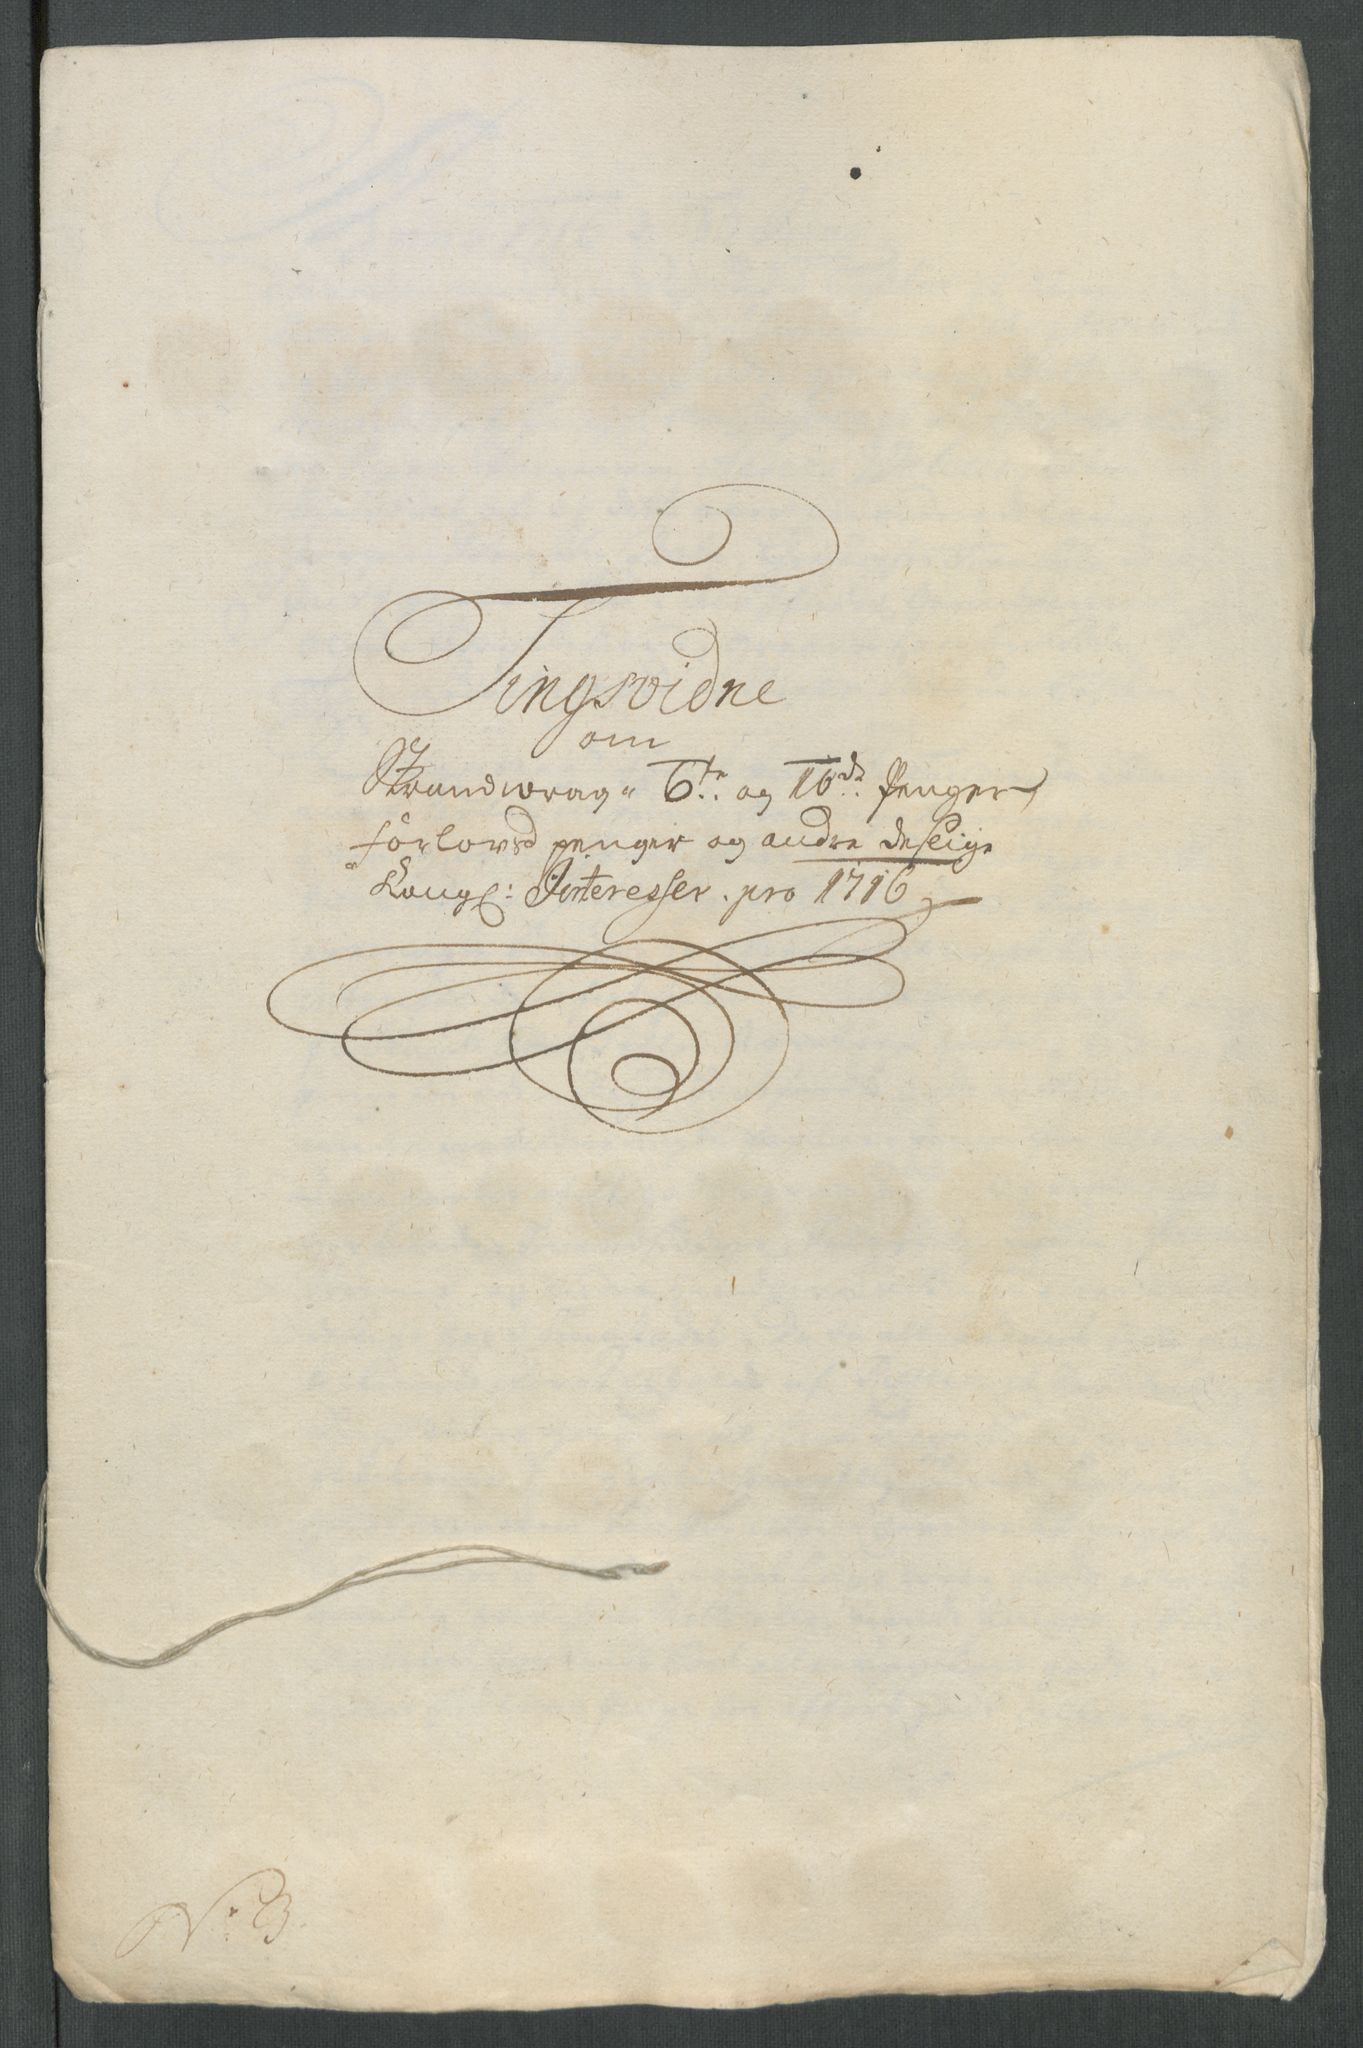 Tingsvidne
om
Strandwrag 6te og 10de Penger,
förlovs penger og andre deslige
Kongl: Interesser. pro 1716
No: 3